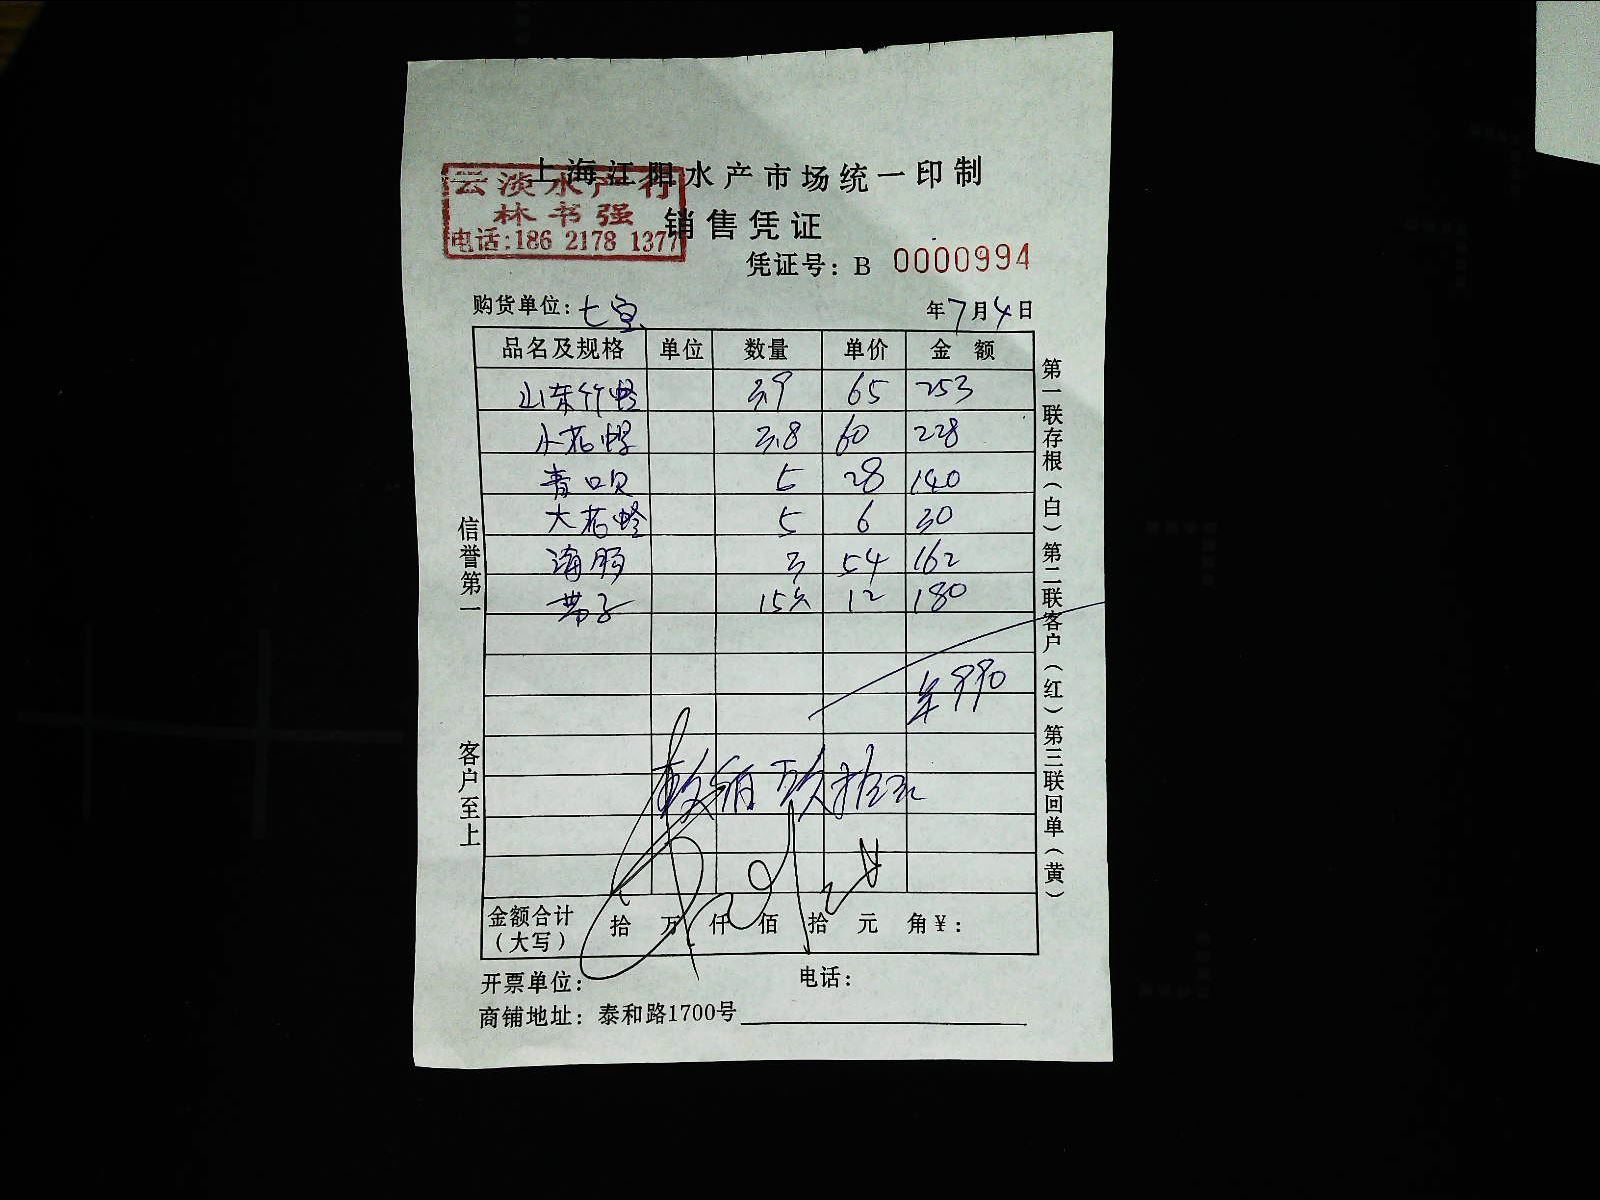 上海江阳水产市场统一印制
云淡水产行
林书强
电话:186 2178 1377
销售凭证
凭证号: B 0000994
购货单位: 七宝 年7月4日
品名及规格 单位 数量 单价 金额
山东竹蛏 3.9 65 253
小花螺 3.8 60 228
青口贝 5 28 140
大花蛤 5 6 30
海肠 3 54 162
带子 15只 12 180
¥990
玖佰玖拾元
金额合计(大写) 拾 万 仟 佰 拾 元 角 ¥:
开票单位: 电话:
商铺地址: 泰和路1700号
信誉第一 客户至上
第一联存根(白)第二联客户(红)第三联回单(黄)